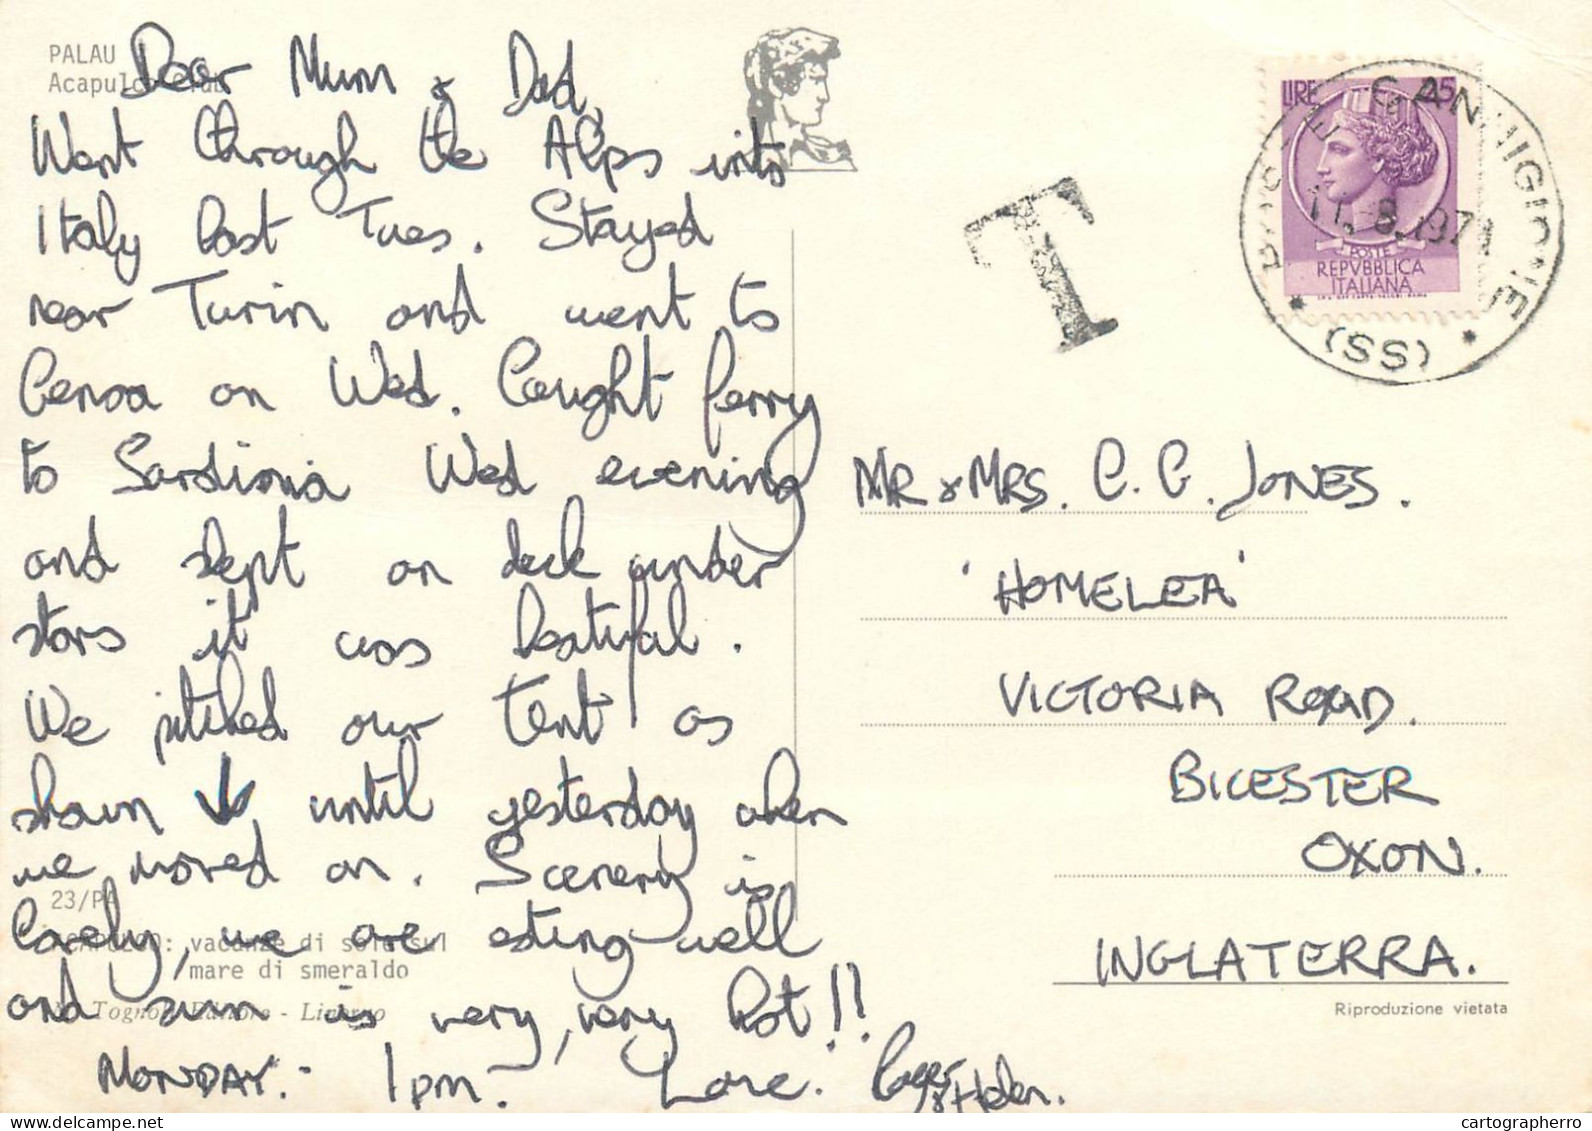 PALAU
Acapulco Club
Dear Mum & Dad,
Went through the Alps into
Italy last Tues. Stayed
near Turin and went to
Genoa on Wed. Caught ferry
to Sardinia Wed evening
and slept on deck under
stars it was beatiful.
We pitched our tent as
shown ↓ until yesterday when
we moved on. Scenery is
lovely, we are eating well
and sun is very, very hot!!
MONDAY:- 1pm. Love. Roger
& Helen.
23/PA
ACAPULCO: vacanze di sole sul
mare di smeraldo
Editore - Livorno
T
LIRE 25
POSTE
REPVBBLICA
ITALIANA
CANNIGIONE
11-8-1971
(SS)
MR & MRS. C. G. JONES.
'HOMELEA'
VICTORIA ROAD.
BICESTER
OXON.
INGLATERRA.
Riproduzione vietata
cartographerro